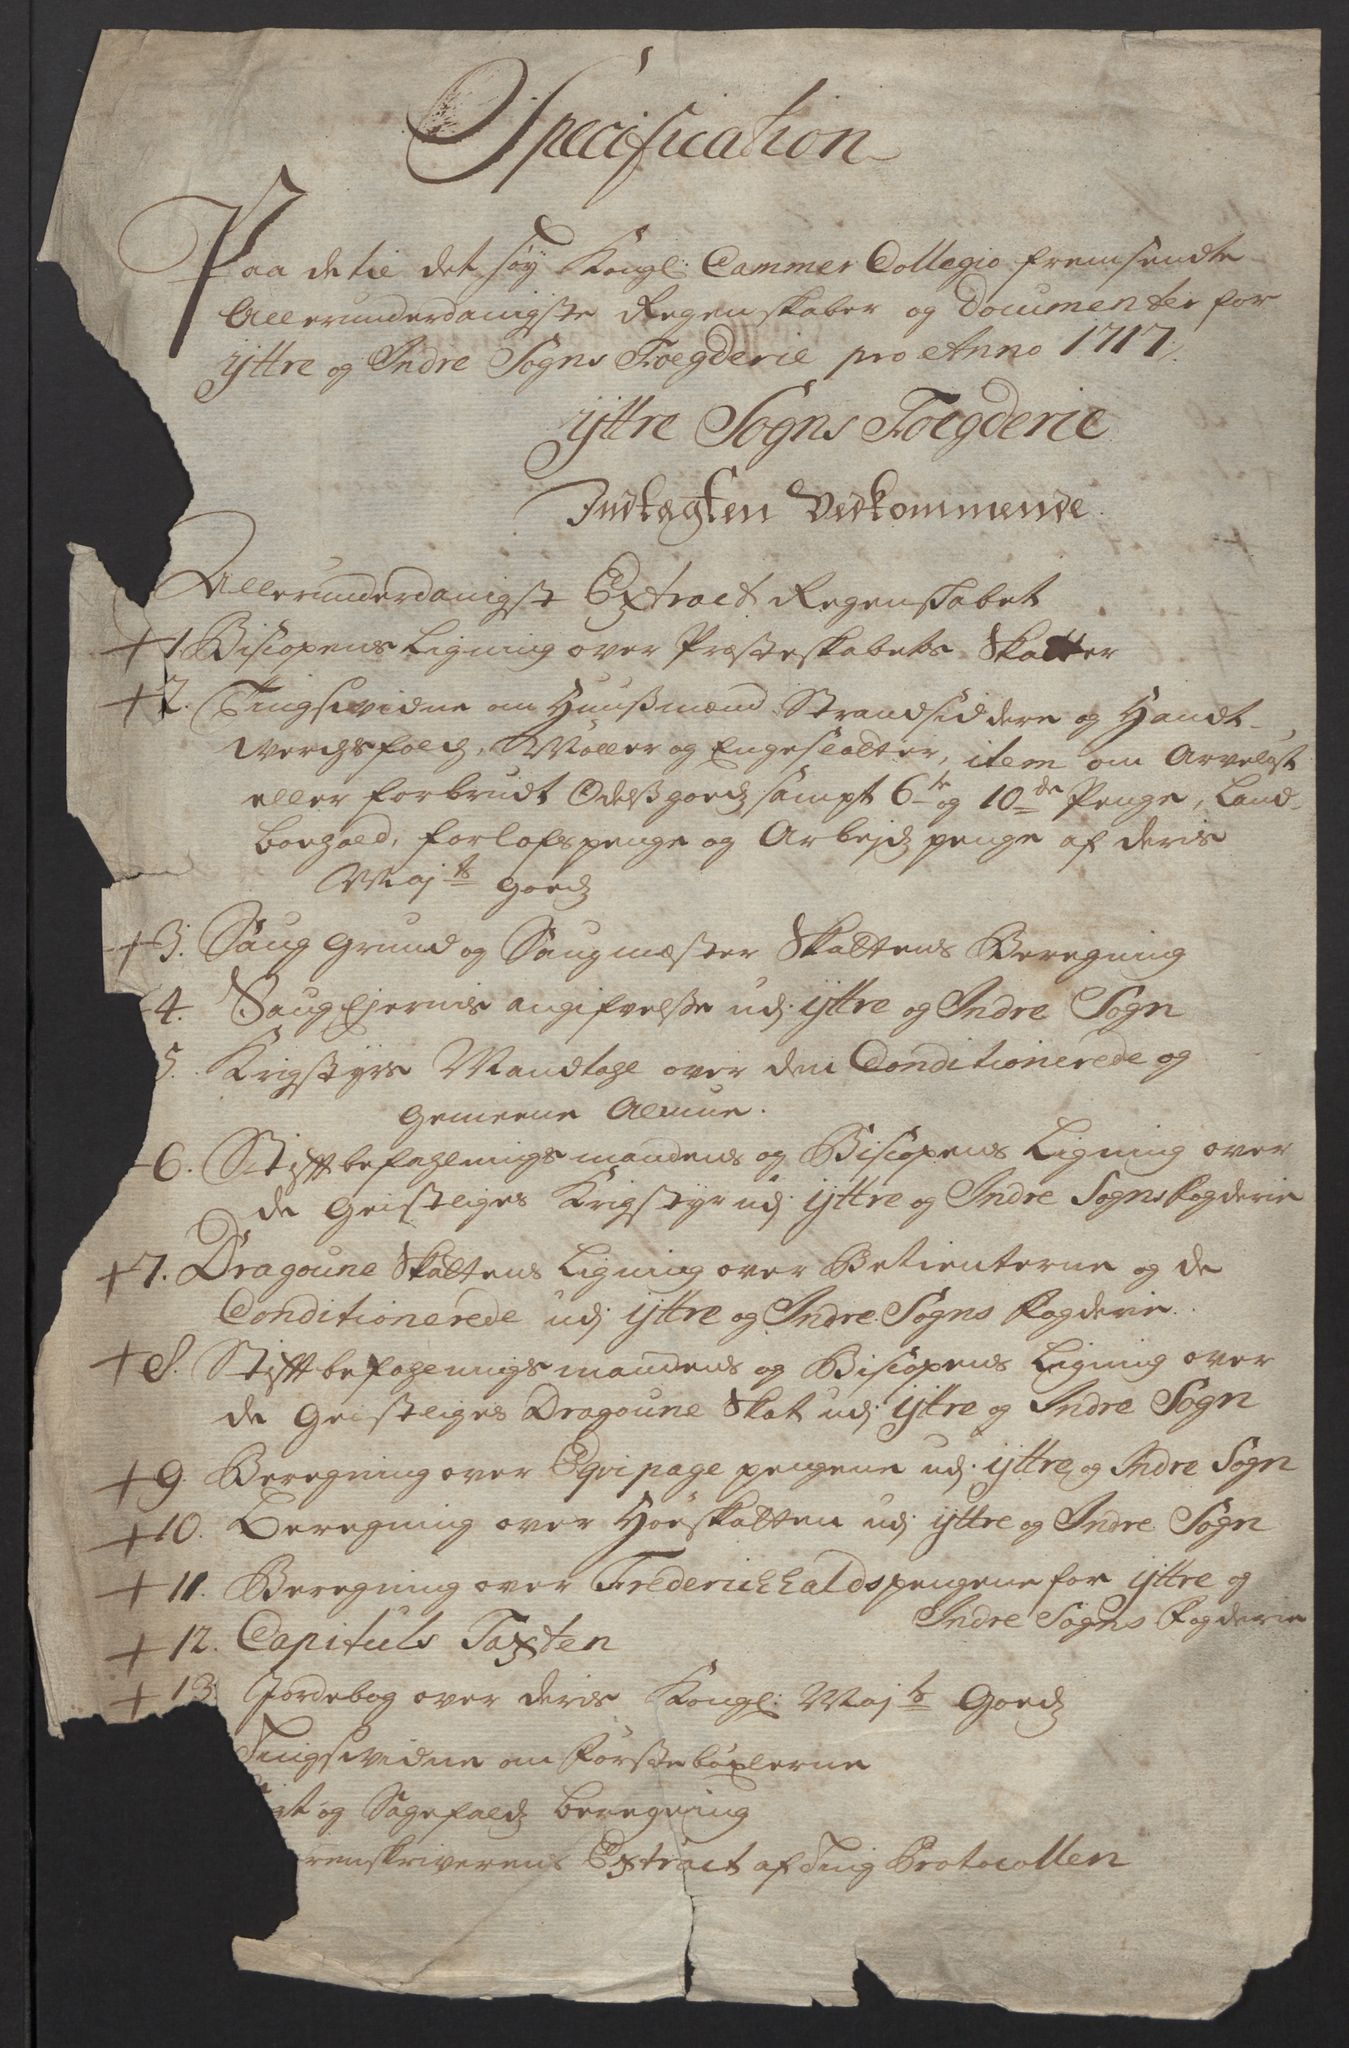 Specification
Paa de til det høy Kongl: Cammer Collegio fremsendte
Allerunderdanigste Regenskaber og Documenter for
ÿttre og Indre Sogns Foegderie pro Anno 1717.
ÿttre Sogns Foegderie
Indtægten Vedkommende.
Allerunderdanigst Extract Regenskabet
+ 1 Biscopens Ligning over Præsteskabets Skatter
+ 2. Tingsvidne om Huusmænd Strandsiddere og Handt-
verchsfolch, Møller og Engeslætter, item om Arveløst
eller forbrudt Odelsgoedz sampt 6te og 10de Penge, Land-
boehold, forlofspenge og Arbejdzpenge af deris
Majts Goedz
+ 3. Saug Grund og Saugmæster Skattens Beregning
4. Saugejernis angifvelse udj ÿttre og Indre Sogn
5. Krigstÿrs Mandtahl over den Conditionerede og
gemeene Almue.
6. Stiftbefahlningsmandens og Biscopens Ligning over
de Geistliges Krigstÿr udj ÿttre og Indre Sogns fogderie
+ 7. Dragoune Skattens Ligning over Betienterne og de
Conditionerede udj ÿttre og Indre Sogns fogderie.
+ 8. Stiftbefahlningsmandens og Biscopens Ligning over
de Geistliges Dragoune Skat udj ÿttre og Indre Sogn
+ 9. Beregning over Eqvipage pengene udj ÿttre og Indre Sogn
+ 10. Beregning over Høeskatten udj ÿttre og Indre Sogn
+ 11. Beregning over Friderichhaldspengene for ÿttre og
Indre Sogns fogderie
+ 12. Capituls Taxten
+ 13. Jordebog over deris Kongl: Majts Goedz
Tingsvidne om Førstebøxlerne
og Sagefaldz beregning
renskriverens Extract af Ting Protocollen